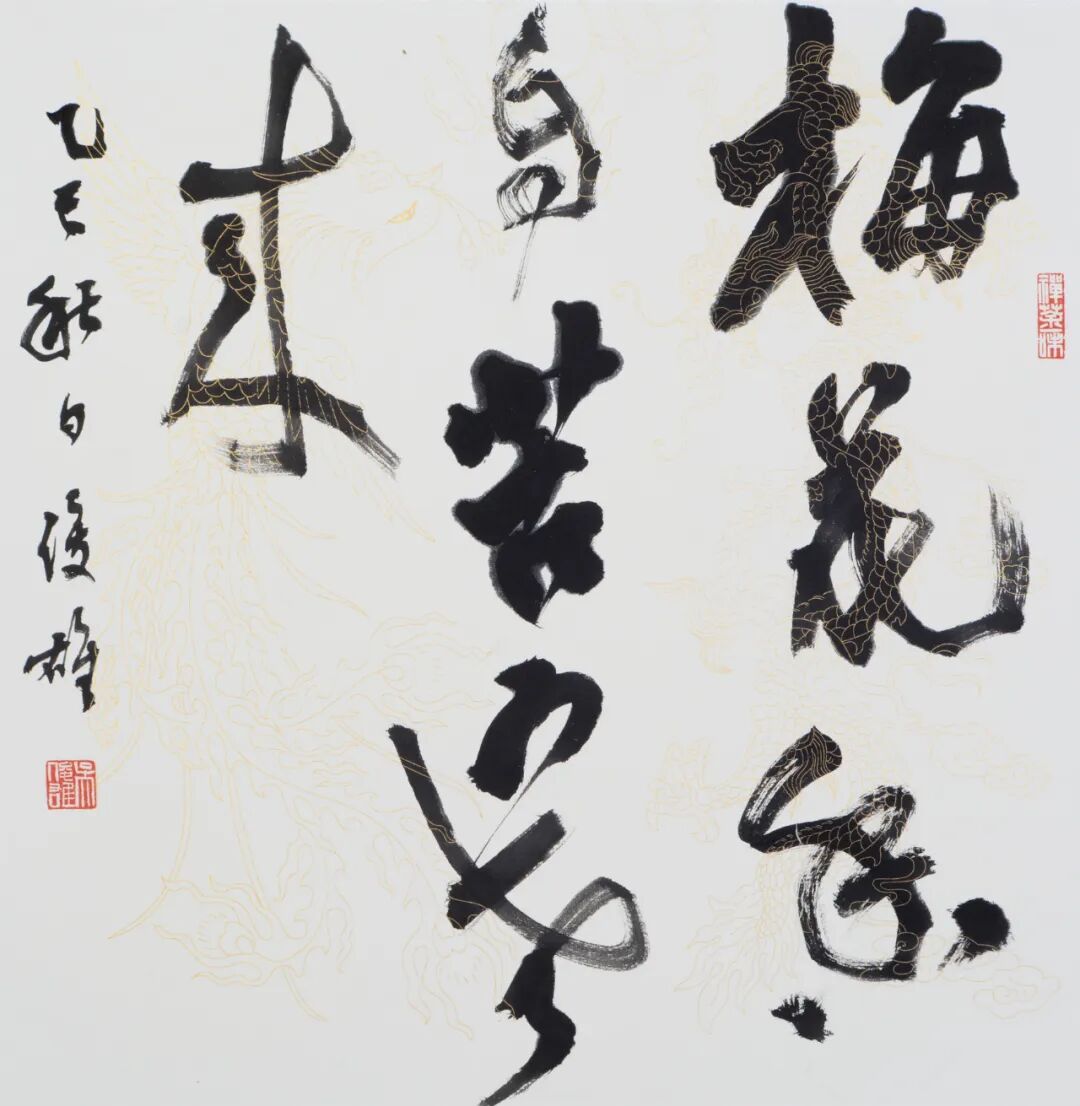 梅花香
自苦寒
来
乙巳秋日俊雄
禪茶味